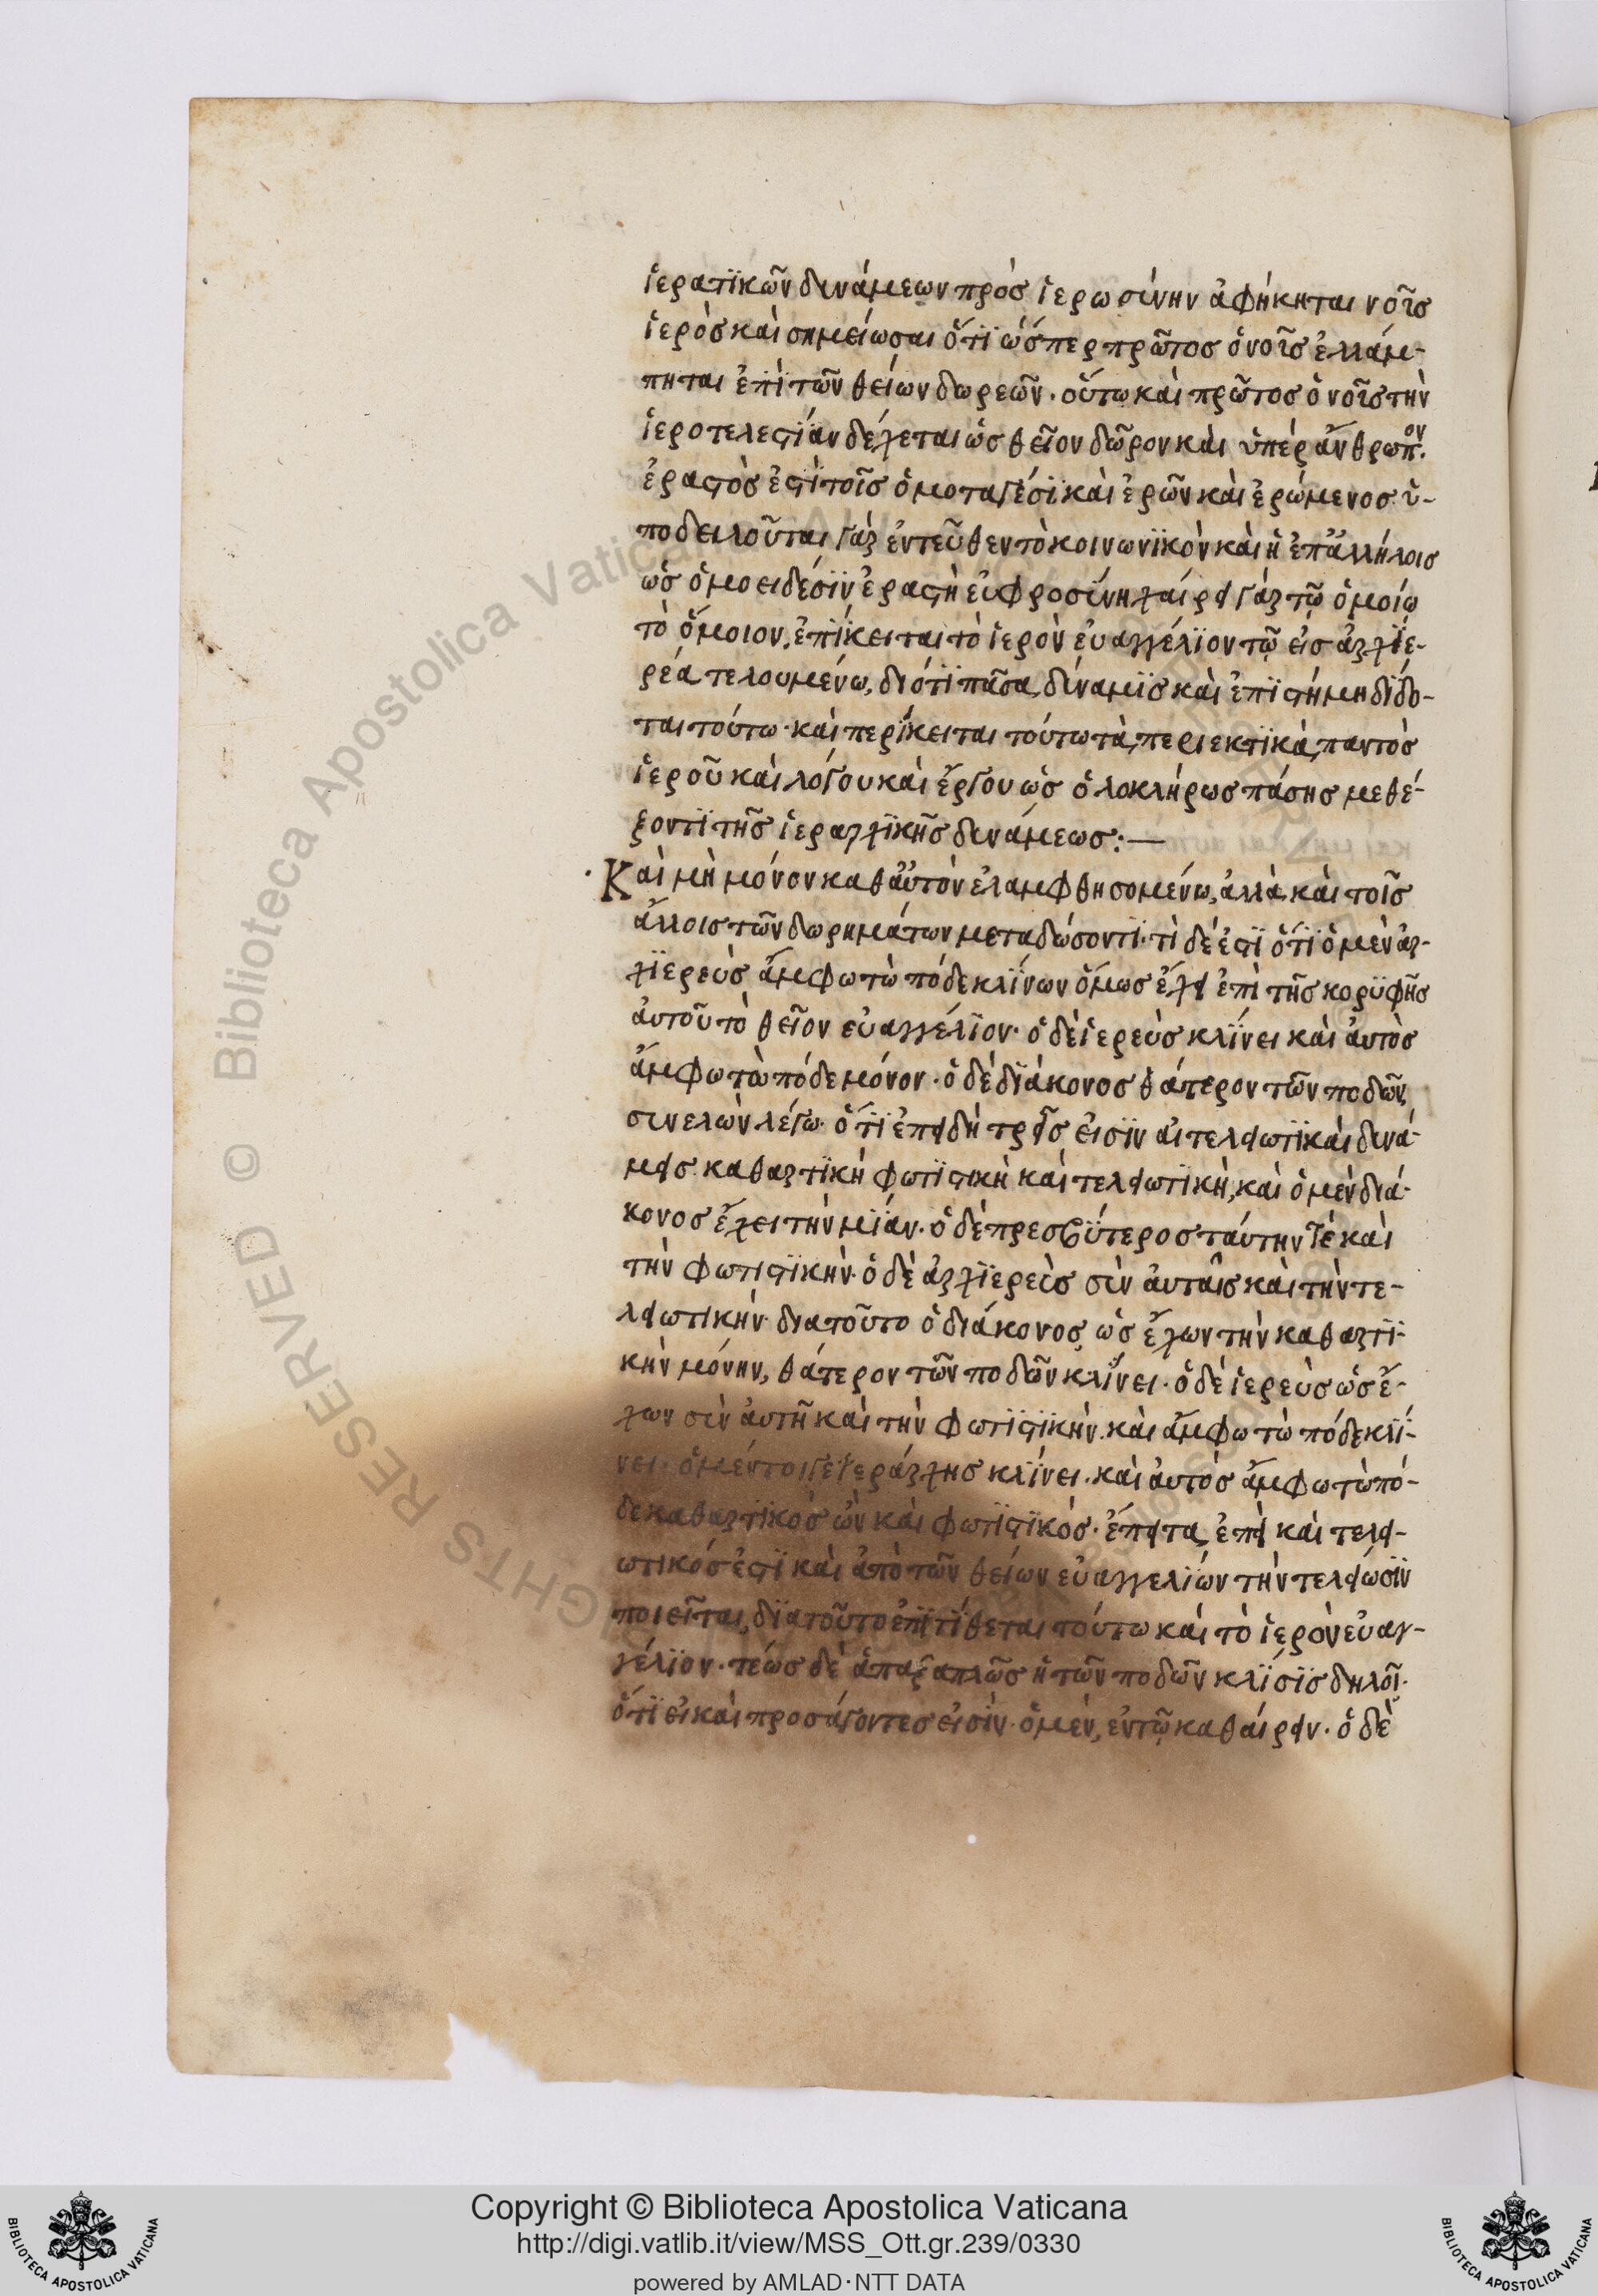 ἱερατϊκῶν δυνάμεων πρὸσ ἱερωσύνην ἀφήκηται νοῦσ
ἱερὸσ καὶ σημείωσαι ὅτϊ ὥσπερ πρῶτοσ ὁ νοῦσ ἐλλάμ-
πηται ἐπὶ τῶν θείων δωρεῶν· οὕτω καὶ πρῶτοσ ὁ νοῦσ τὴν
ἱεροτελεστίαν δέχεται ὡσ θεῖον δῶρον καὶ ὑπὲρ ἄνθρωπον.
ἐραστὸσ ἐστὶ τοῖσ ὁμοταγέσϊ καὶ ἐρῶν καὶ ἐρώμενοσ· ὑ-
ποδειλοῦται γὰρ ἐντεῦθεν τὸ κοινωνϊκὸν καὶ ἡ ἐπἀλλήλοισ
ὡσ ὁμοειδέσϊν ἐραστὴ εὐφροσύνη χαίρει γὰρ τῷ ὁμοίω
τὸ ὅμοιον, ἐπίκειται τὸ ἱερὸν εὐαγγέλϊον τῷ εἰσ ἀρχϊε-
ρέα τελουμένω, διότϊ πᾶσα δύναμϊσ καὶ ἐπϊστήμη δϊδο-
ται τούτω· καὶ περίκειται τούτω τὰ περιεκτϊκὰ παντὸσ
ἱεροῦ καὶ λόγου καὶ ἔργου ὡσ ὁλοκλήρωσ πάσησ μεθέ-
ξοντϊ τῆσ ἱεραρχϊκῆσ δυνάμεωσ:—
Καὶ μὴ μόνον καθἀυτὸν ἐλαμφθησομένω, ἀλλὰ καὶ τοῖσ
ἄλλοισ τῶν δωρημάτων μεταδώσοντϊ· τὶ δέ ἐστϊ ὅτϊ ὁ μὲν ἀρ-
χϊερεὺσ ἄμφω τὼ πόδε κλϊνων ὅμωσ ἔχει ἐπὶ τῆσ κορϋφῆσ
ἀυτοῦ τὸ θεῖον εὐαγγέλϊον· ὁ δὲ ἱερεὺσ κλϊνει καὶ ἀυτὸσ
ἄμφω τὼ πόδε μόνον· ὁ δὲ δϊάκονοσ θάτερον τῶν ποδῶν,
συνελὼν λέγω· ὅτϊ ἐπειδὴ τρεῖσ εἰσϊν αἱ τελειωτϊκαὶ δυνά-
μεισ καθαρτϊκὴ φωτϊστικὴ καὶ τελειωτϊκὴ, καὶ ὁ μὲν διά-
κονοσ ἔχει τὴν μϊαν· ὁ δὲ πρεσβϋτεροσ ταύτην τὲ καὶ
τὴν φωτιστϊκὴν· ὁ δὲ ἀρχϊερεὺσ σὺν ἀυταῖσ καὶ τὴν τε-
λειωτικὴν· διατοῦτο ὁ διάκονοσ, ὡσ ἔχων τὴν καθαρτϊ-
κὴν μόνην, θάτερον τῶν ποδῶν κλϊνει· ὁ δὲ ἱερεὺσ ὡσ ἔ-
χων σὺν ἀυτῆ καὶ τὴν φωτϊστϊκὴν· καὶ ἄμφω τὼ πόδε κλϊ-
νει· ὁ μέντοι γε ἱεράρχησ κλϊνει· καὶ ἀυτὸσ ἄμφω τὼ πό-
δε καθαρτϊκὸσ ὢν καὶ φωτϊστϊκόσ· ἔπειτα, ἐπεὶ καὶ τελει-
ωτικόσ ἐστϊ καὶ ἀπὸ τῶν θείων εὐαγγελϊων τὴν τελείωσϊν
ποιεῖται, δϊατοῦτο ἐπϊτϊθεται τούτω καὶ τὸ ἱερὸν εὐαγ-
γέλϊον· τέωσ δὲ ἁπαξαπλῶσ ἡ τῶν ποδῶν κλϊσϊσ δηλοῖ·
ὅτϊ εἰ καὶ προσάγοντεσ εἰσὶν· ὁ μὲν, ἐν τῷ καθαίρειν· ὁ δὲ
Copyright © Biblioteca Apostolica Vaticana
http://digi.vatlib.it/view/MSS_Ott.gr.239/0330
powered by AMLAD·NTT DATA